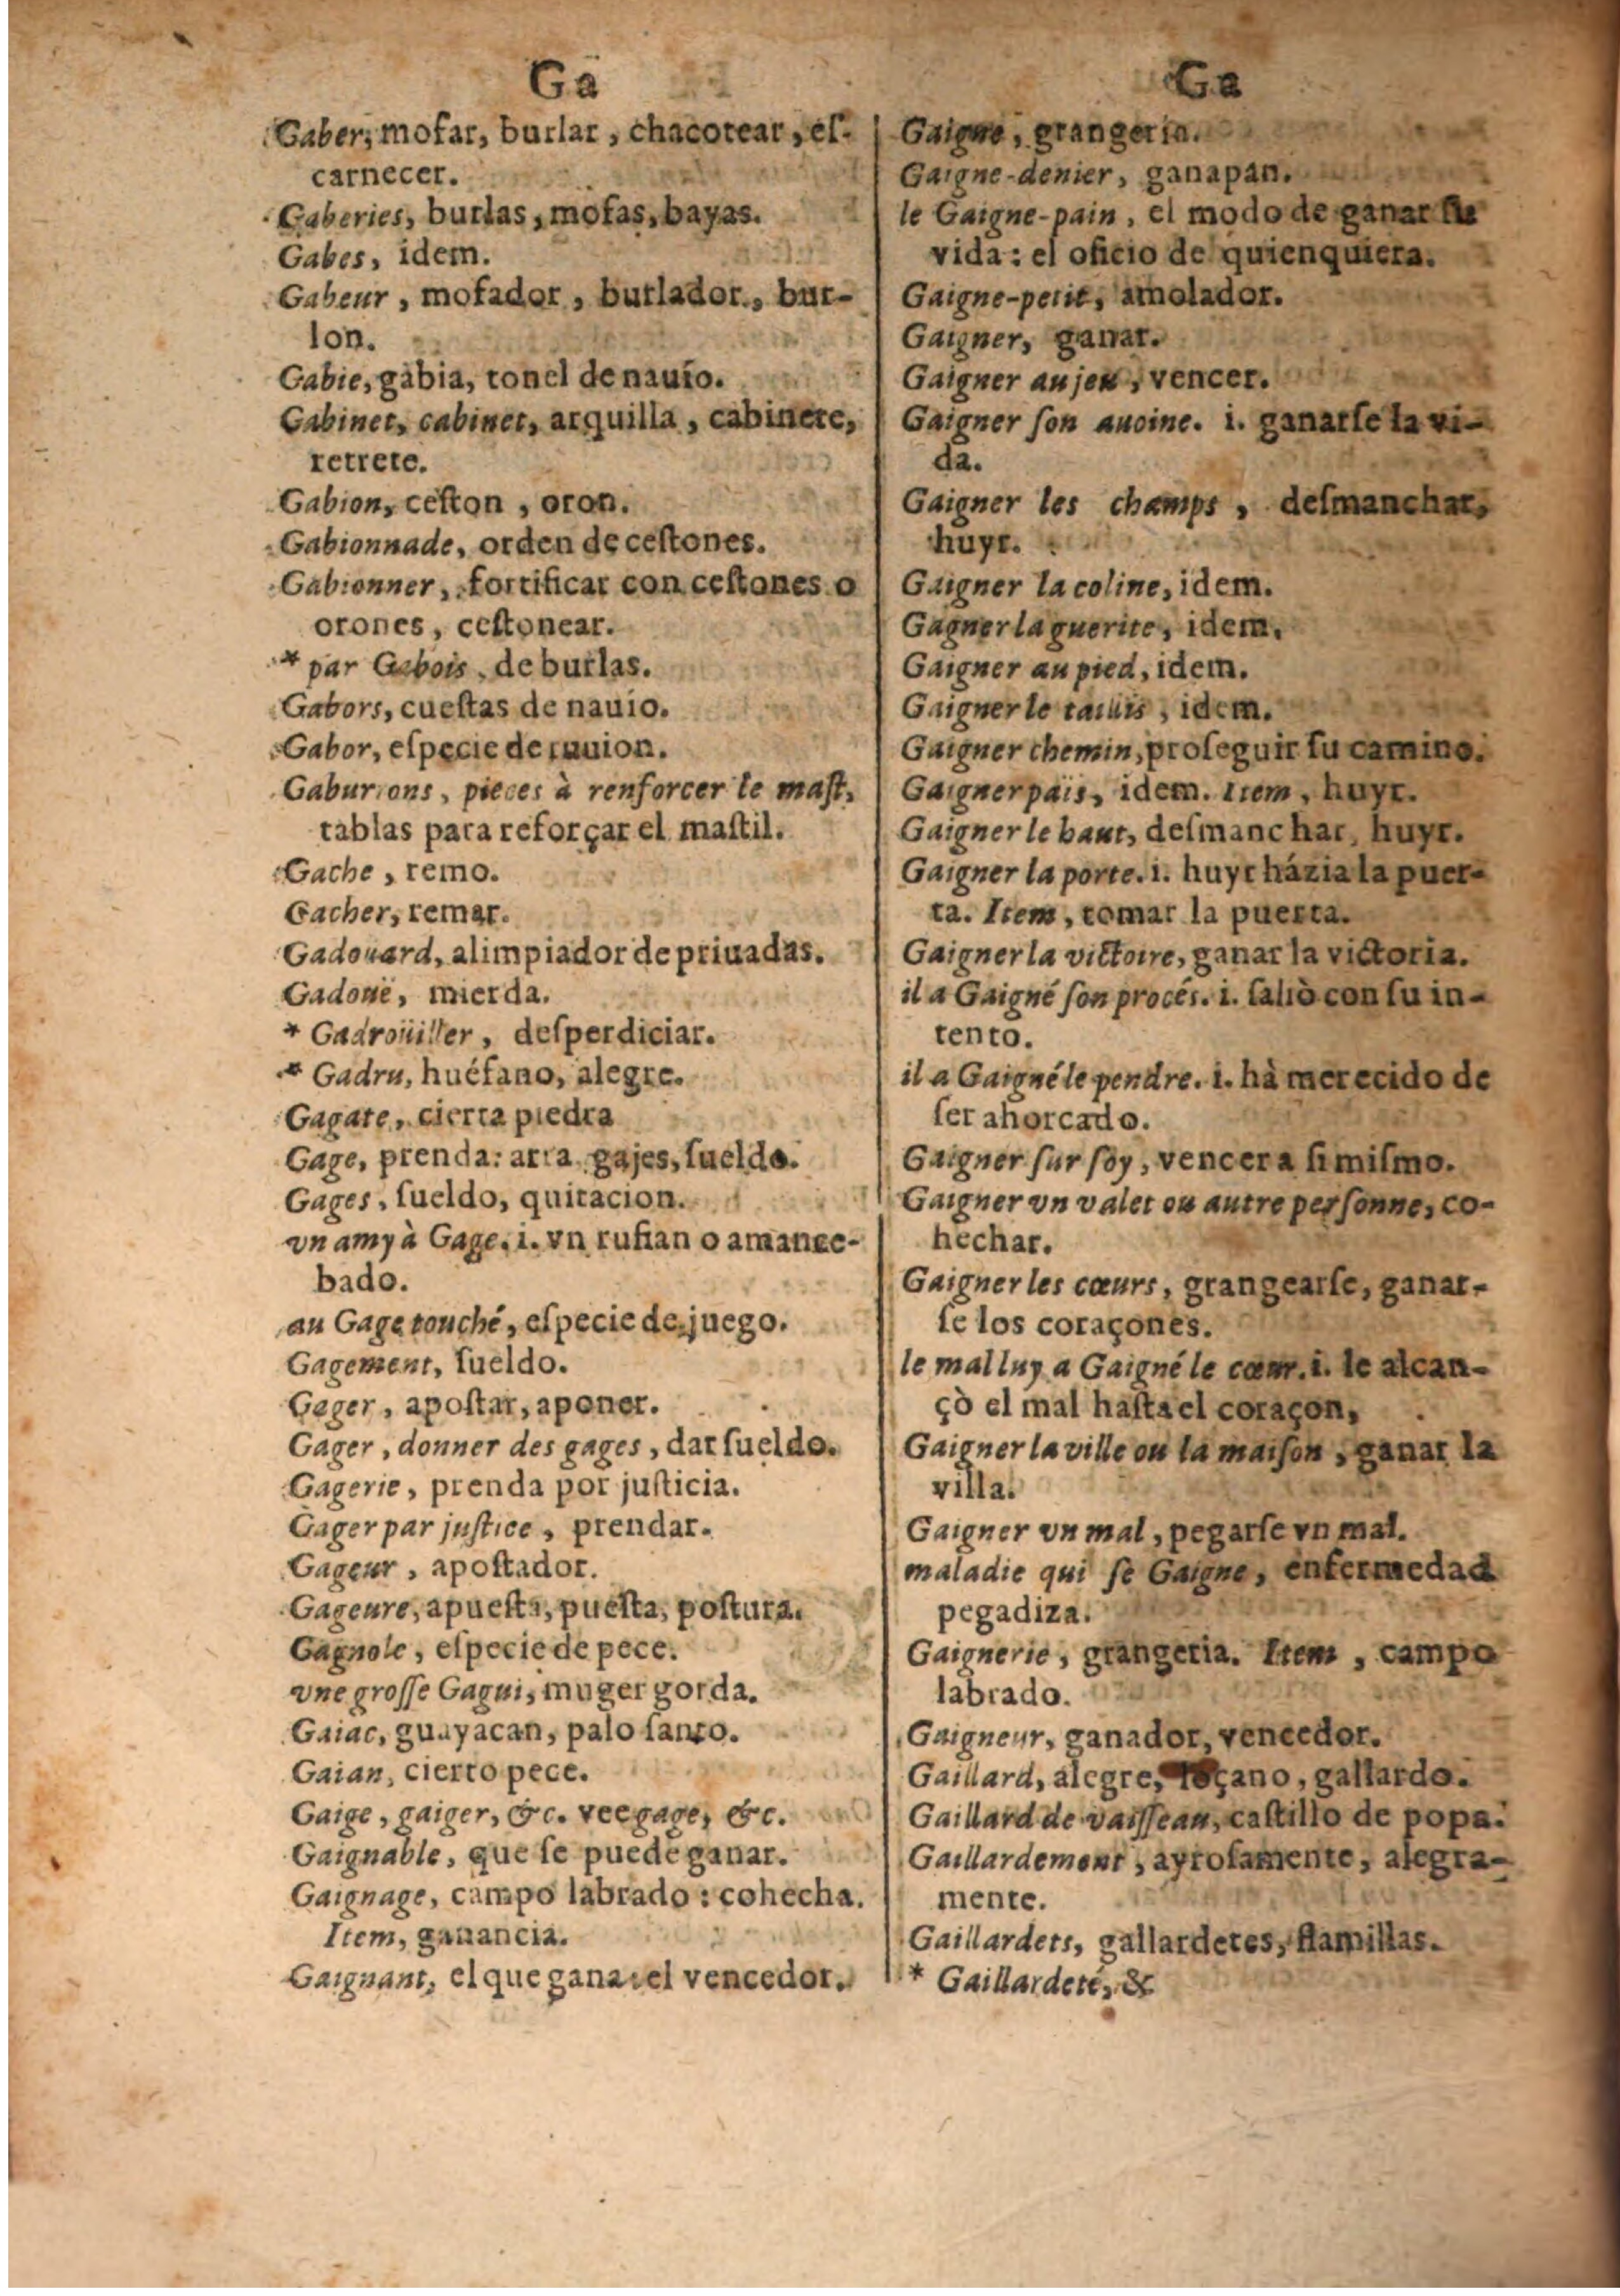 Ga
Gaber, mofar, burlar, chacotear, eſ-
carnecer.
Gaberies, burlas, mofas, bayas.
Gabes, idem.
Gabeur, mofador, burlador, bur-
lon.
Gabie, gabia, tonel de nauío.
Gabinet, cabinet, arquilla, cabinete,
retrete.
Gabion, ceſton, oron.
Gabionnade, orden de ceſtones.
Gabionner, fortificar con ceſtones o
orones, ceſtonear.
* par Gabois, de burlas.
Gabors, cueſtas de nauío.
Gabor, eſpecie de nauion.
Gaburons, pieces à renforcer le maſt,
tablas para reforçar el maſtil.
Gache, remo.
Gacher, remar.
Gadouard, alimpiador de priuadas.
Gadouë, mierda.
* Gadroüiller, deſperdiciar.
* Gadru, huéfano, alegre.
Gagate, cierta piedra
Gage, prenda: arra, gajes, ſueldo.
Gages, ſueldo, quitacion.
vn amy à Gage. i. vn rufian o amance-
bado.
au Gage touché, eſpecie de juego.
Gagement, ſueldo.
Gager, apoſtar, aponer.
Gager, donner des gages, dar ſueldo.
Gagerie, prenda por juſticia.
Gager par juſtice, prendar.
Gageur, apoſtador.
Gageure, apueſta, pueſta, poſtura.
Gagnole, eſpecie de pece.
vne groſſe Gagui, muger gorda.
Gaiac, guayacan, palo ſanto.
Gaian, cierto pece.
Gaige, gaiger, &c. vee gage, &c.
Gaignable, que ſe puede ganar.
Gaignage, campo labrado: cohecha.
Item, ganancia.
Gaignant, el que gana: el vencedor.
Ga
Gaigne, grangeria.
Gaigne-denier, ganapan.
le Gaigne-pain, el modo de ganar ſu
vida: el oficio de quienquiera.
Gaigne-petit, amolador.
Gaigner, ganar.
Gaigner au jeu, vencer.
Gaigner ſon auoine. i. ganarſe la vi-
da.
Gaigner les champs, deſmanchar,
huyr.
Gaigner la coline, idem.
Gagner la guerite, idem,
Gaigner au pied, idem.
Gaigner le taillis, idem.
Gaigner chemin, proſeguir ſu camino.
Gaigner païs, idem. Item, huyr.
Gaigner le haut, deſmanchar, huyr.
Gaigner la porte. i. huyr házia la puer-
ta. Item, tomar la puerta.
Gaigner la victoire, ganar la victoria.
il a Gaigné ſon procés. i. ſaliò con ſu in-
tento.
il a Gaigné le pendre. i. hà merecido de
ſer ahorcado.
Gaigner ſur ſoy, vencer a ſi miſmo.
Gaigner vn valet ou autre perſonne, co-
hechar.
Gaigner les cœurs, grangearſe, ganar-
ſe los coraçones.
le mal luy a Gaigné le cœur. i. le alcan-
çò el mal haſta el coraçon,
Gaigner la ville ou la maiſon, ganar la
villa.
Gaigner vn mal, pegarſe vn mal.
maladie qui ſe Gaigne, enfermedad
pegadiza.
Gaignerie, grangeria. Item, campo
labrado.
Gaigneur, ganador, vencedor.
Gaillard, alegre, loçano, gallardo.
Gaillard de vaiſſeau, caſtillo de popa.
Gaillardement, ayroſamente, alegra-
mente.
Gaillardets, gallardetes, flamillas.
* Gaillardeté, &